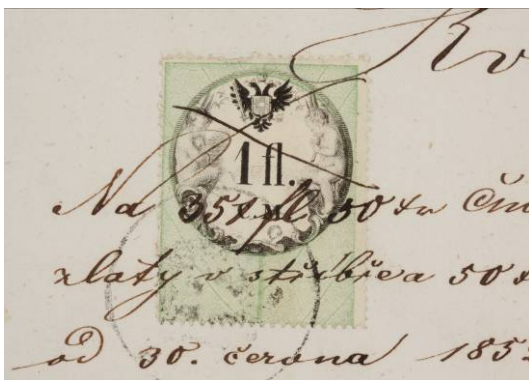 Kv
1 fl.
Na 357 fl 50 xr Čin
zlatý v stříbře a 50 x
od 30. června 185